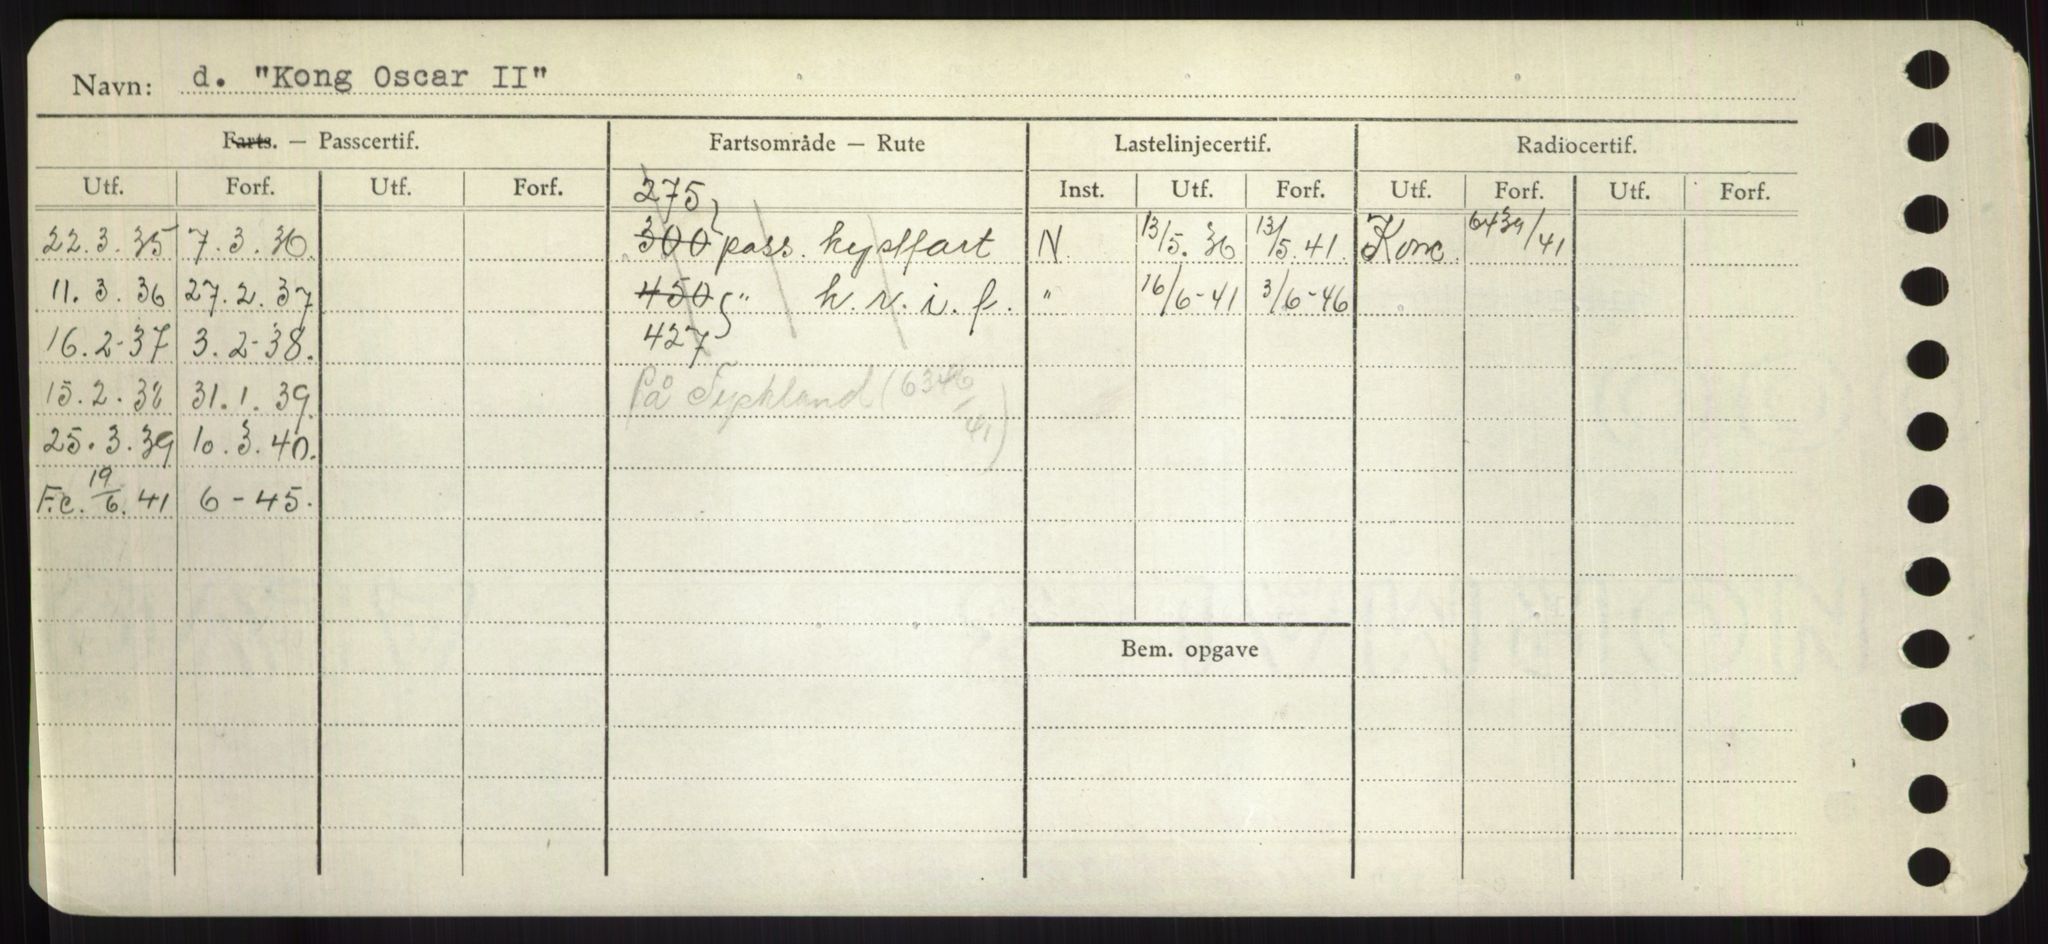 Navn: d. "Kong Oscar II"
Farts. — Passcertif. Fartsområde — Rute Lastelinjecertif. Radiocertif.
Utf. Forf. Utf. Forf. 275 Inst. Utf. Forf. Utf. Forf. Utf. Forf.
22.3.35 7.3.36. 300 pass. kystfart N. 13/5.36 13/5.41. Konc. 6439/41
11.3.36 27.2.37 450 " k.v.i.f. " 16/6-41 3/6-46
16.2-37 3.2-38. 427
15.2.38 31.1.39. På Tyskland (6346/41)
25.3.39 10.3.40.
F.c. 19/6.41 6-45.
Bem. opgave